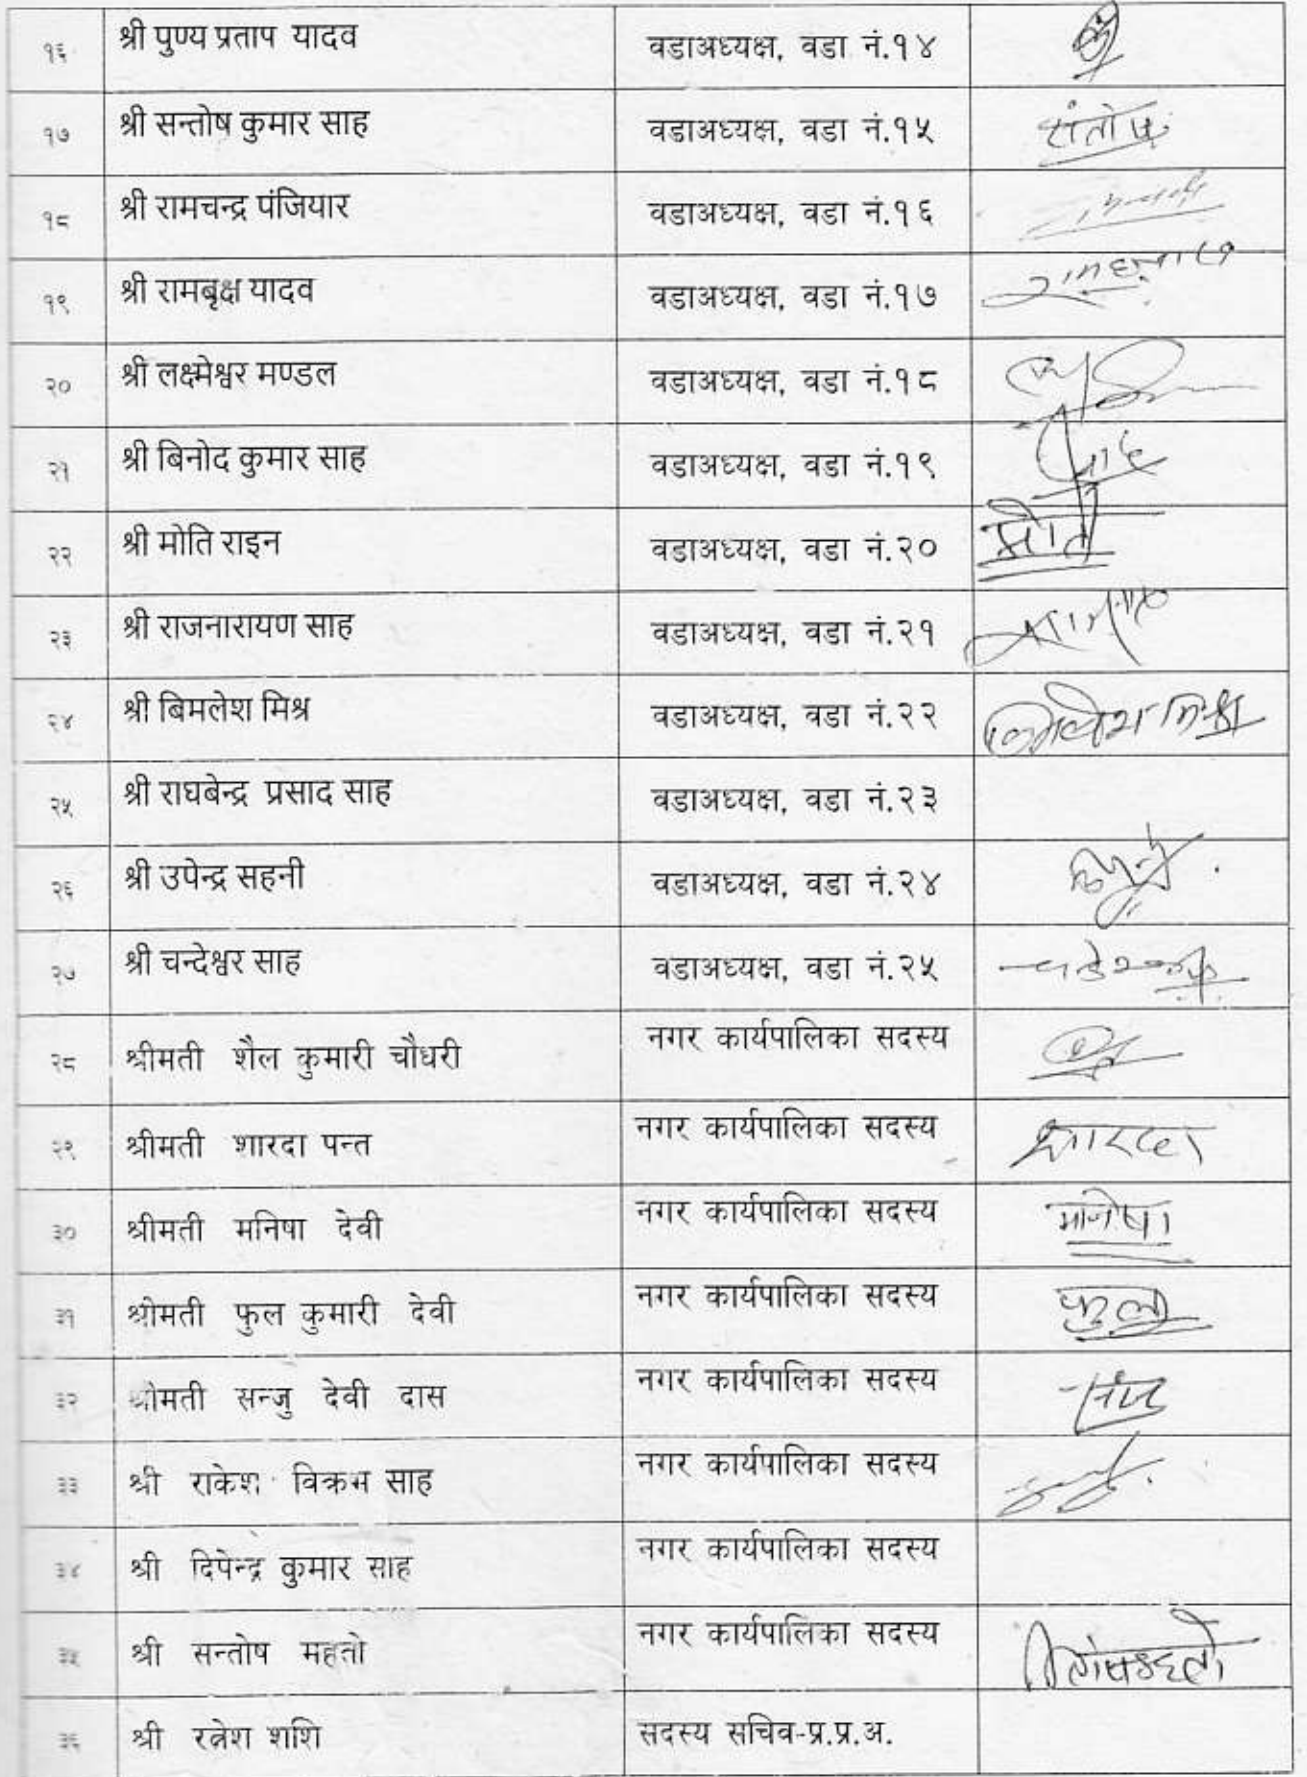 १६ श्री पुण्य प्रताप यादव वडाअध्यक्ष, वडा नं.१४
१७ श्री सन्तोष कुमार साह वडाअध्यक्ष, वडा नं.१५ संतोष
१८ श्री रामचन्द्र पंजियार वडाअध्यक्ष, वडा नं.१६
१९ श्री रामबृक्ष यादव वडाअध्यक्ष, वडा नं.१७
२० श्री लक्ष्मेश्वर मण्डल वडाअध्यक्ष, वडा नं.१८
२१ श्री बिनोद कुमार साह वडाअध्यक्ष, वडा नं.१९
२२ श्री मोति राइन वडाअध्यक्ष, वडा नं.२० मोति
२३ श्री राजनारायण साह वडाअध्यक्ष, वडा नं.२१
२४ श्री बिमलेश मिश्र वडाअध्यक्ष, वडा नं.२२ बिमलेश मिश्र
२५ श्री राघबेन्द्र प्रसाद साह वडाअध्यक्ष, वडा नं.२३
२६ श्री उपेन्द्र सहनी वडाअध्यक्ष, वडा नं.२४
२७ श्री चन्देश्वर साह वडाअध्यक्ष, वडा नं.२५
२८ श्रीमती शैल कुमारी चौधरी नगर कार्यपालिका सदस्य
२९ श्रीमती शारदा पन्त नगर कार्यपालिका सदस्य शारदा
३० श्रीमती मनिषा देवी नगर कार्यपालिका सदस्य मनिषा
३१ श्रीमती फुल कुमारी देवी नगर कार्यपालिका सदस्य
३२ श्रीमती सन्जु देवी दास नगर कार्यपालिका सदस्य
३३ श्री राकेश विक्रम साह नगर कार्यपालिका सदस्य
३४ श्री दिपेन्द्र कुमार साह नगर कार्यपालिका सदस्य
३५ श्री सन्तोष महतो नगर कार्यपालिका सदस्य
३६ श्री रत्नेश शशि सदस्य सचिव-प्र.प्र.अ.